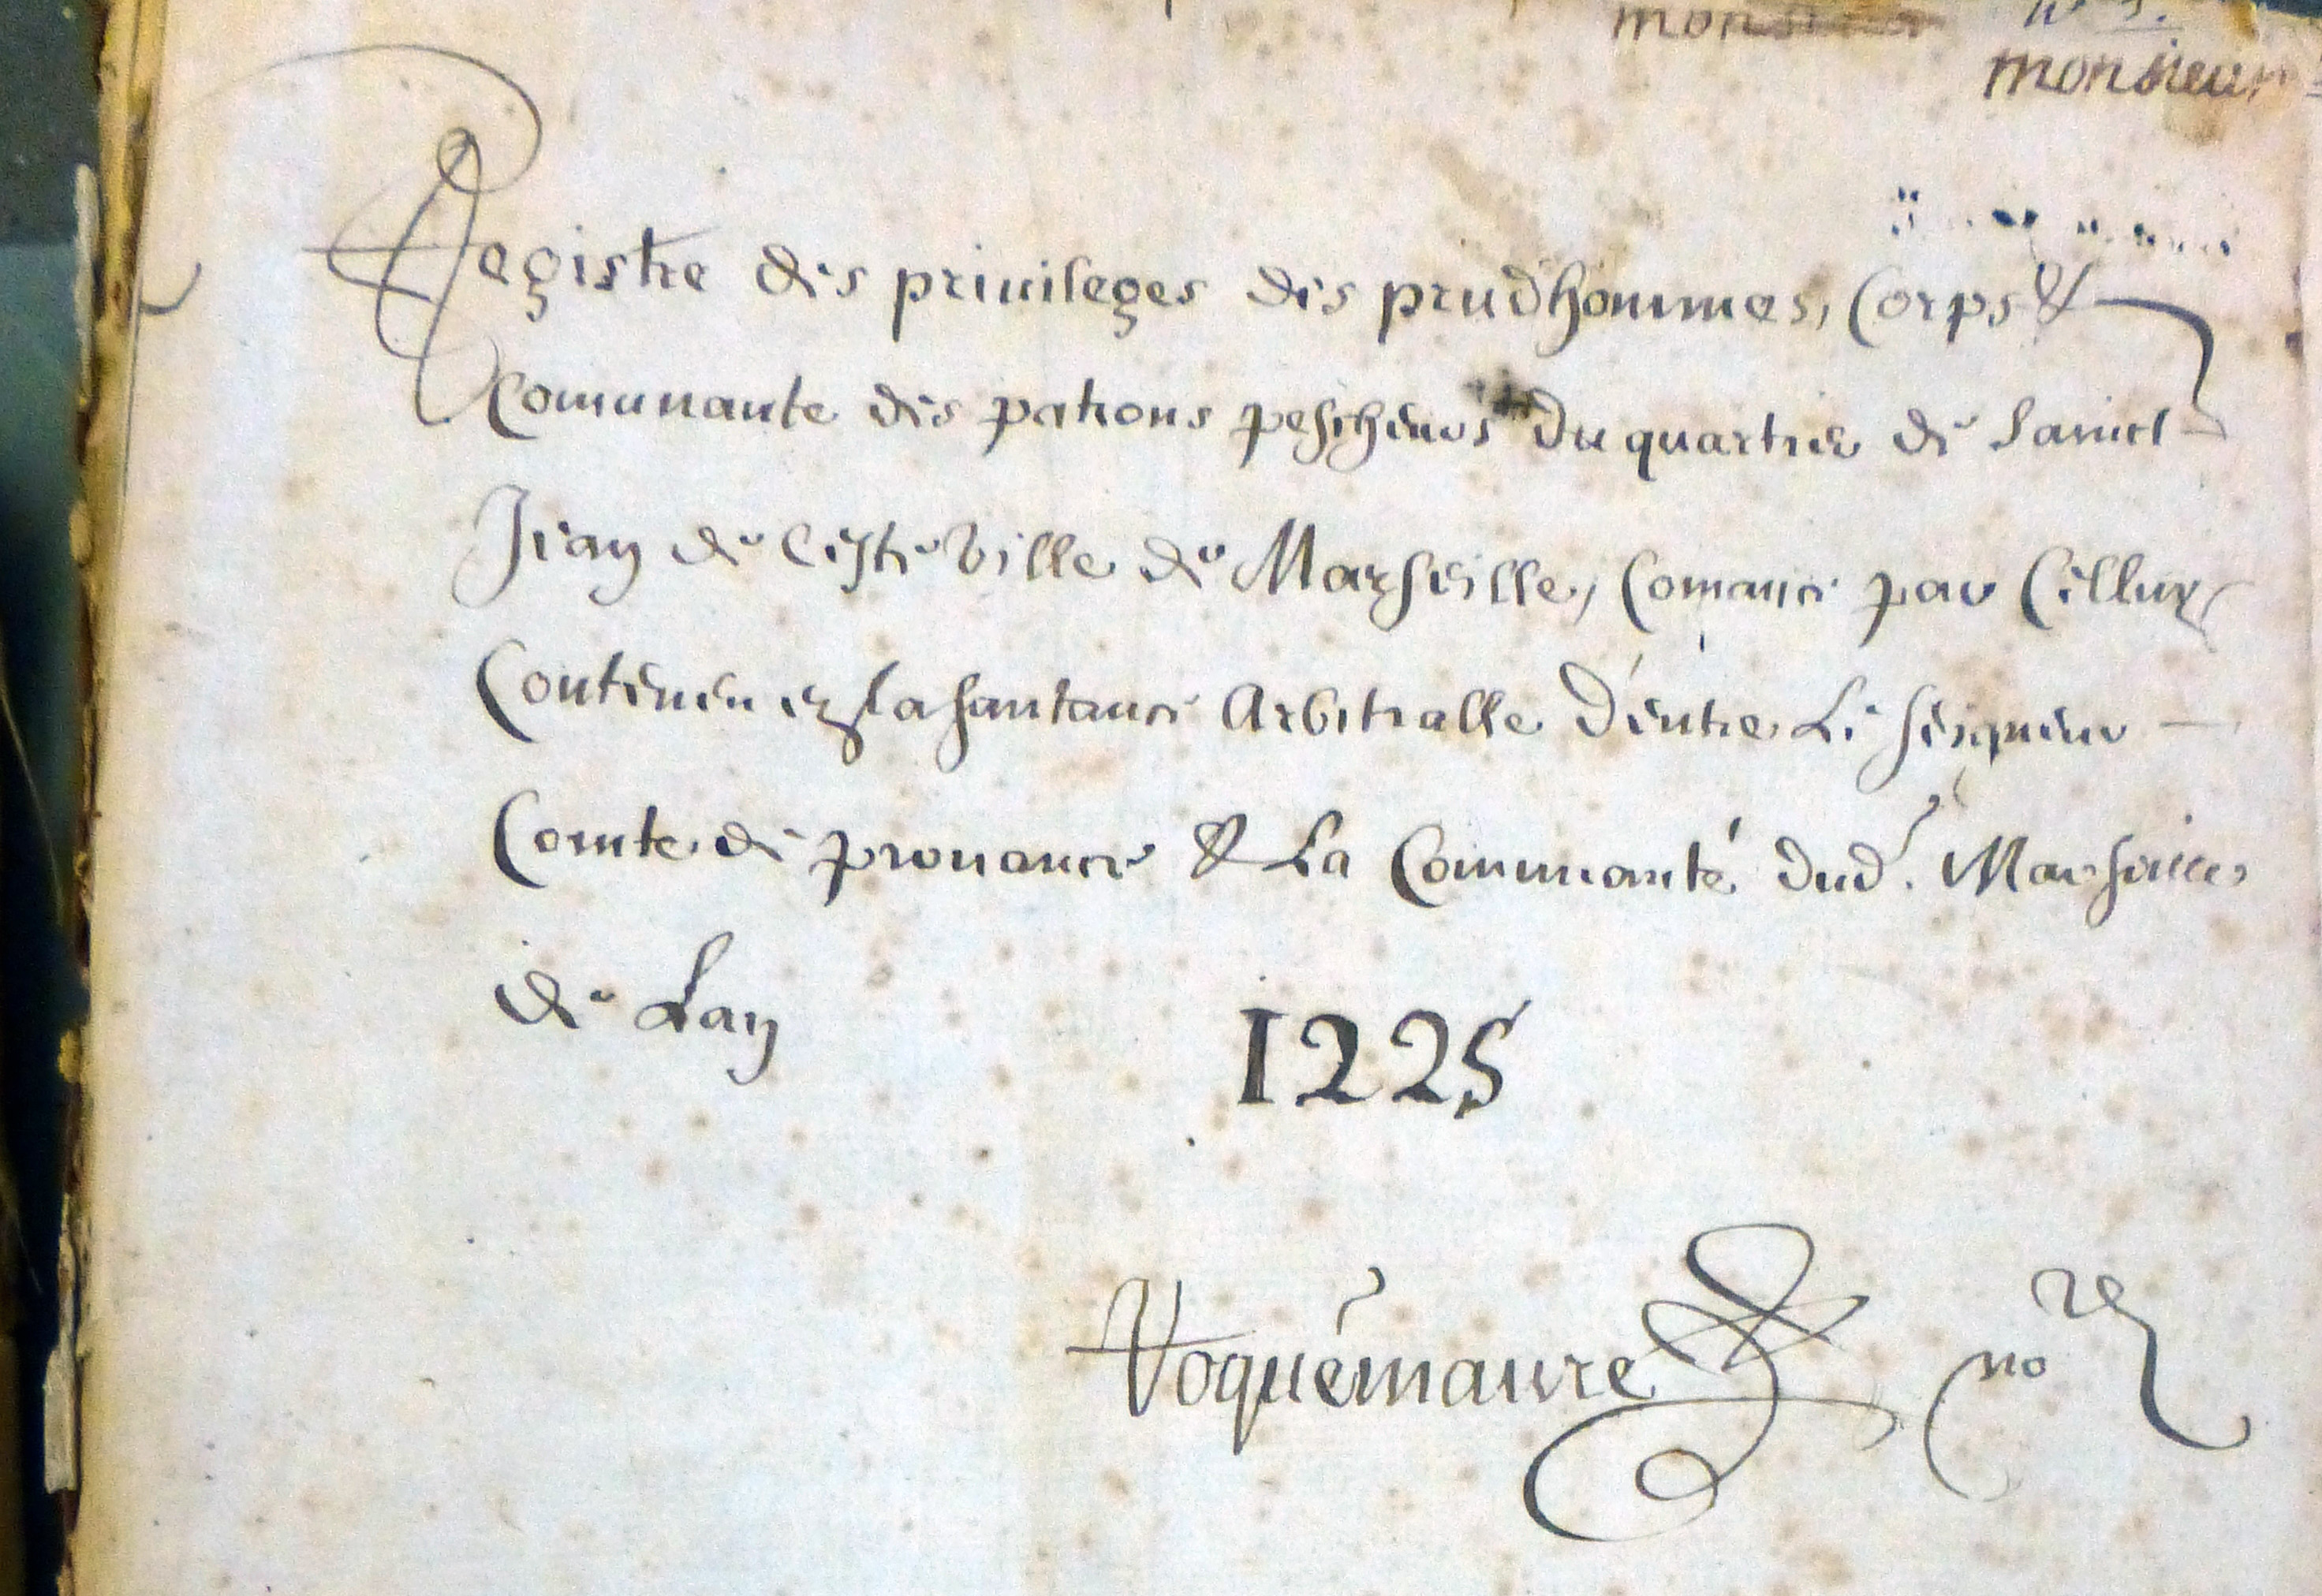 monsieur
monsieur
Registre des priuileges des prudhommes, Corps &
Comunaute des patrons pescheurs du quartier de Sainct
Jean de Ceste ville de Marseille, Comance par Celluy
Contenen en la santance Arbitralle D'entre Le seigneur
Comte de prouance & La Communauté dud. Marseille
de Lan 1225
Roquemaure no re